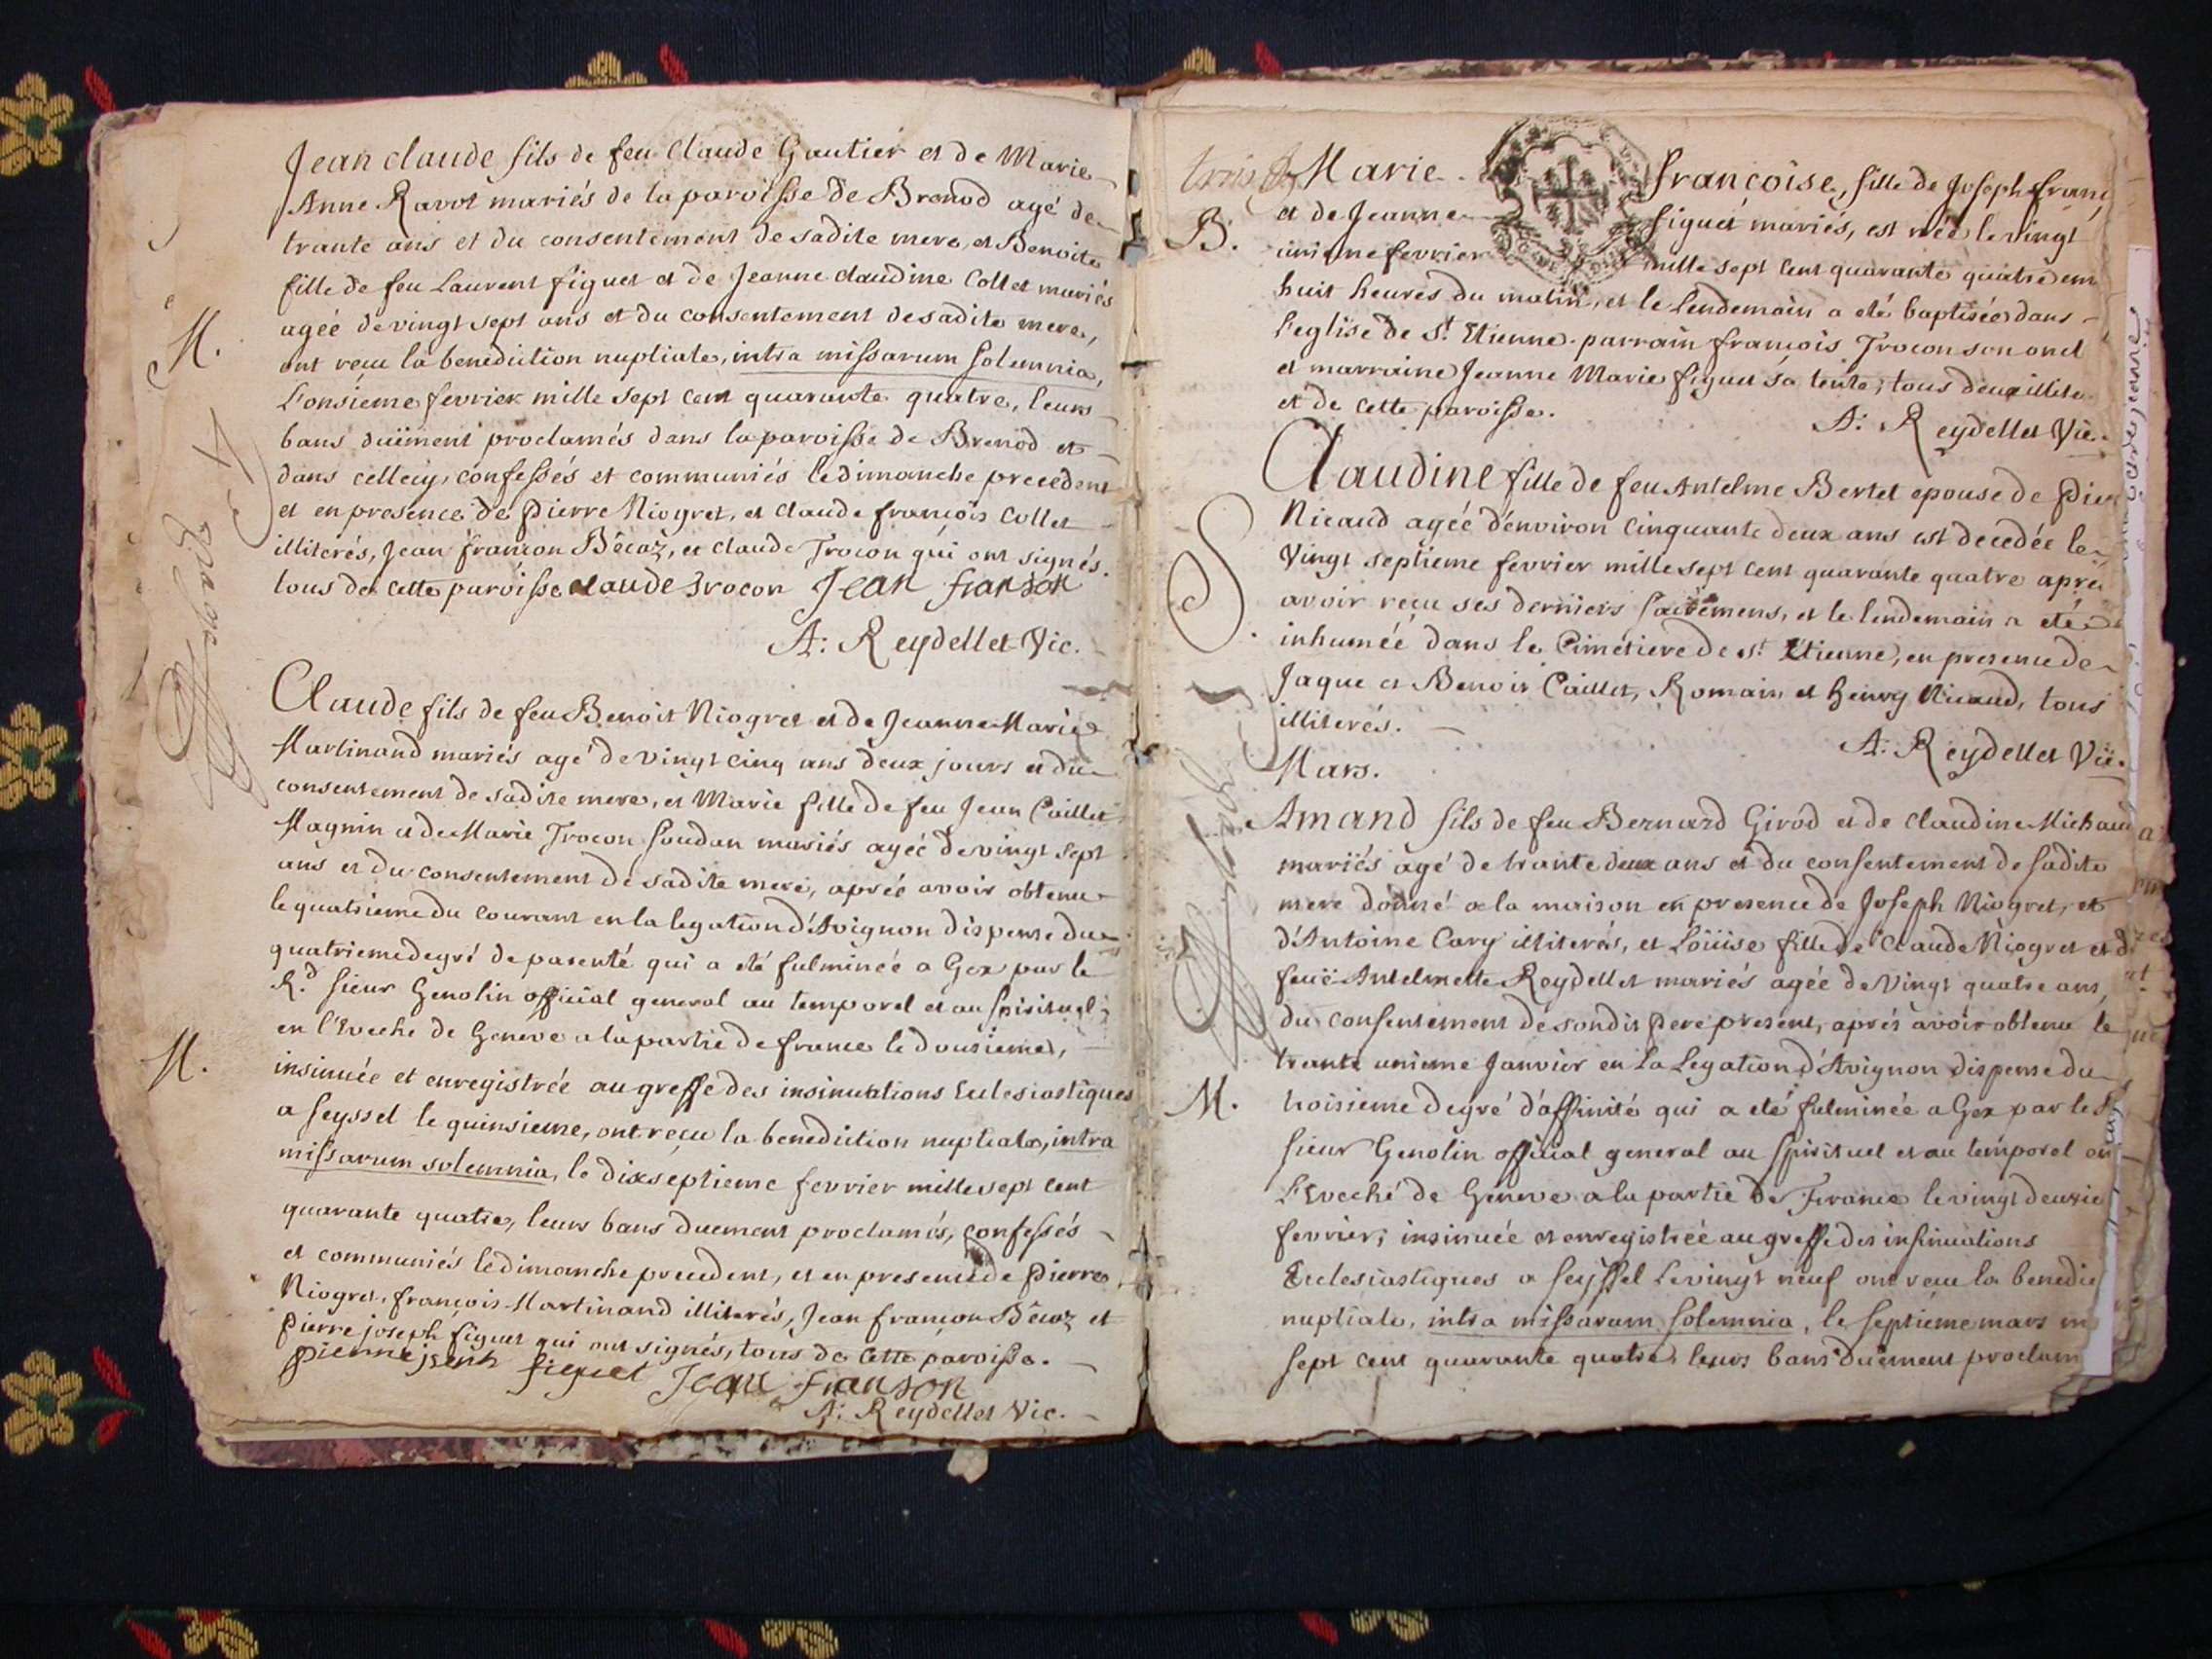 Jean claude fils de feu Claude Gautier et de Marie
Anne Ravot mariés de la paroisse de Brenod agé de
trante ans et du consentement de sadite mere, et Benoite
fille de feu Laurent figuet et de Jeanne claudine Collet mariés
agée de vingt sept ans et du consentement de sadite mere,
M.
ont reçu la benediction nuptiale, intra missarum solemnia,
L'onsieme fevrier mille sept cent quarante quatre, leurs
bans duëment proclamés dans la paroisse de Brenod et
dans cellecy, confessés et communiés le dimanche precedent
et en presence de Pierre Niogret, et Claude françois Collet
illiterés, Jean françon Bêcaz, et claude Trocon qui ont signés.
tous de cette paroisse claude Trocon Jean franson
A: Reydellet Vic.
Claude fils de feu Benoit Niogret et de Jeanne Marie
Martinand mariés agé de vingt cinq ans deux jours et du
consentement de sadite mere, et Marie fille de feu Jean Caillet
Magnin et de Marie Trocon Soudan mariés agée de vingt sept
ans et du consentement de sadite mere, aprée avoir obtenu
le quatrieme du courant en la legation d'Avignon dispense du
quatrieme degré de parenté qui a eté fulminée a Gex par le
R.d sieur Genolin official general au temporel et au spirituel
en l'Eveché de Geneve a la partie de france le dousieme,
M.
insinuée et enregistrée au greffe des insinuations Eclesiastiques
a seyssel le quinsieme, ont reçu la benediction nuptiale, intra
missarum solemnia, le dixseptieme fevrier mille sept cent
quarante quatre, leurs bans duement proclamés, confessés
et communiés le dimanche precedent, et en presence de pierre
Niogret, françois Martinand illiterés, Jean françon Bêcaz et
pierre joseph figuet qui ont signés, tous de cette paroisse.
figuet Jean franson
A: Reydellet Vic.
trois Marie françoise, fille de Joseph franç
B.
et de Jeanne figuet mariés, est née le vingt
unieme fevrier mille sept cent quarante quatre
huit heures du matin, et le lendemain a eté baptisée dans
l'eglise de s.t Etienne. parrain françois Trocon son oncl
et marraine Jeanne Marie figuet sa tente; tous deux illite
et de cette paroisse.
A: Reydellet Vic.
Claudine fille de feu Antelme Bertet epouse de Pier
Nicaud agée d'environ cinquante deux ans est decedée le
S.
vingt septieme fevrier mille sept cent quarante quatre apre
avoir reçu ses derniers sacremens, et le lendemain a eté
inhumée dans le Cimétiere de s.t Etienne, en presence de
Jaque et Benoit Caillet, Romain et Henry Nicaud, tous
illiterés.
A: Reydellet Vic.
Mars.
Amand fils de feu Bernard Girod et de claudine Michaud
mariés agé de trante deux ans et du consentement de sadite
mere donné a la maison en presence de Joseph Niogret, et
d'Antoine Cary illiterés, et Loüise fille de Claude Niogret et d
feuë Antelmette Reydellet mariés agée de vingt quatre ans,
du consentement de sondit pere present, aprés avoir obtenu le
trante unieme Janvier en la Legation d'Avignon dispense du
M.
troisieme degré d'affinité qui a eté fulminée a Gex par le
sieur Genolin official general au spirituel et au temporel en
L'Eveché de Geneve a la partie de France le vingt deuxie
fevrier, insinuée et enregistrée au greffe des insinuations
Eclesiastiques a seyssel le vingt neuf ont reçu la benedic
nuptiale, intra missarum solemnia, le septieme mars mi
sept cent quarante quatre, leurs bans duëment proclam